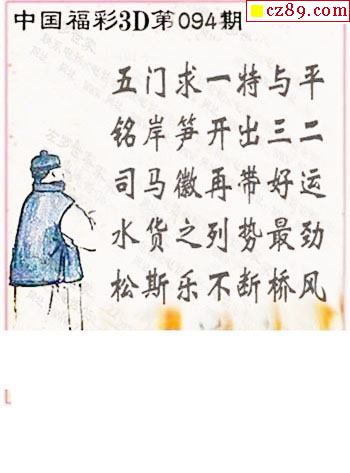 cz89.com
中国福彩3D第094期
五门求一特与平
铭岸笋开出三二
司马徽再带好运
水货之列势最劲
松斯乐不断桥风